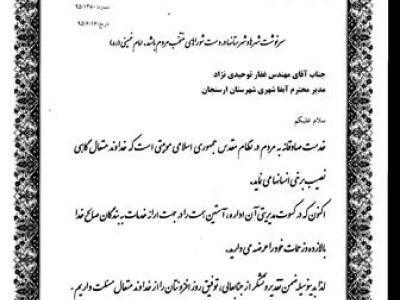 شماره: ۹۵/۱۲۸۰
تاریخ: ۹۵/۶/۱۶
سرنوشت شهرها و شهرستانها در دست شوراهای منتخب مردم باشد. امام خمینی (ره)
جناب آقای مهندس غفار توحیدی نژاد
مدیر محترم آبفا شهری شهرستان ارسنجان
سلام علیکم
خدمت صادقانه به مردم در نظام مقدس جمهوری اسلامی موهبتی است که خداوند متعال گاهی
نصیب برخی انسانها می نماید.
اکنون که در کسوت مدیریتی آن اداره، آستین همت را در جهت ارائه خدمات به بندگان صالح خدا
بالا زده و زحمات خود را عرضه می دارید.
لذا بدینوسیله ضمن تقدیر و تشکر از جنابعالی، توفیق روز افزونتان را از خداوند متعال مسئلت داریم.